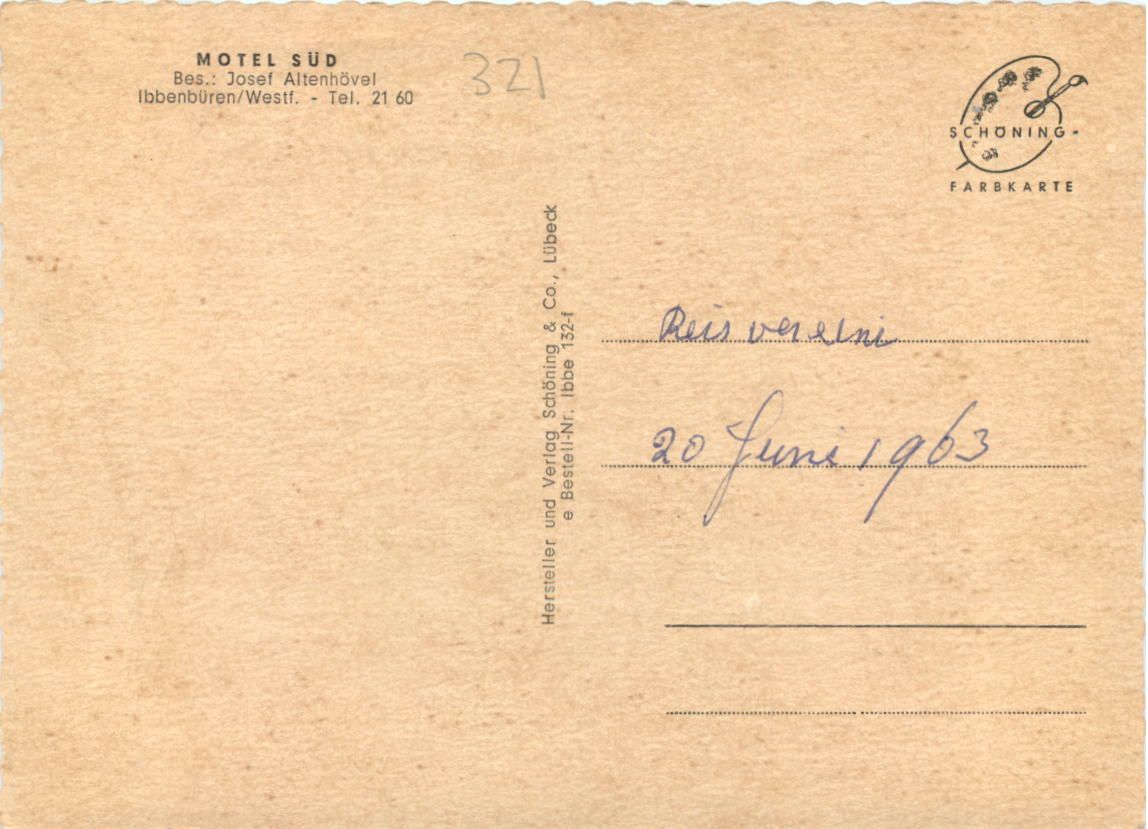 MOTEL SÜD
Bes.: Josef Altenhövel
Ibbenbüren/Westf. - Tel. 21 60
321
SCHÖNING-
FARBKARTE
Hersteller und Verlag Schöning & Co., Lübeck
e Bestell-Nr. Ibbe 132-f
Reis
20 Juni 1963